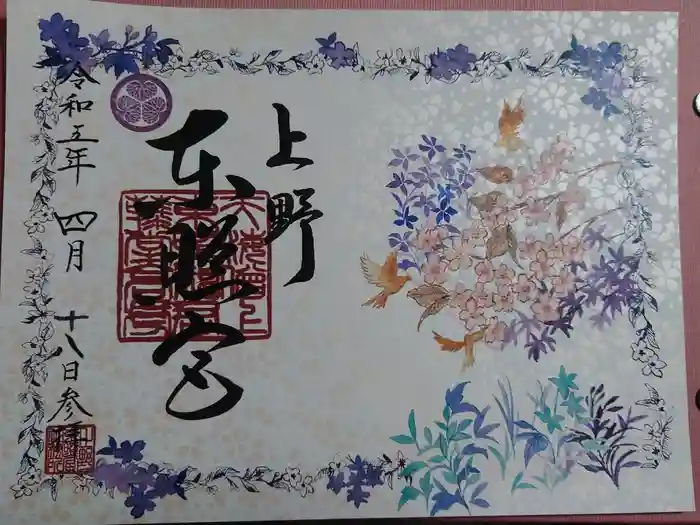 上野
東照宮
令和五年 四月 十八日参拝